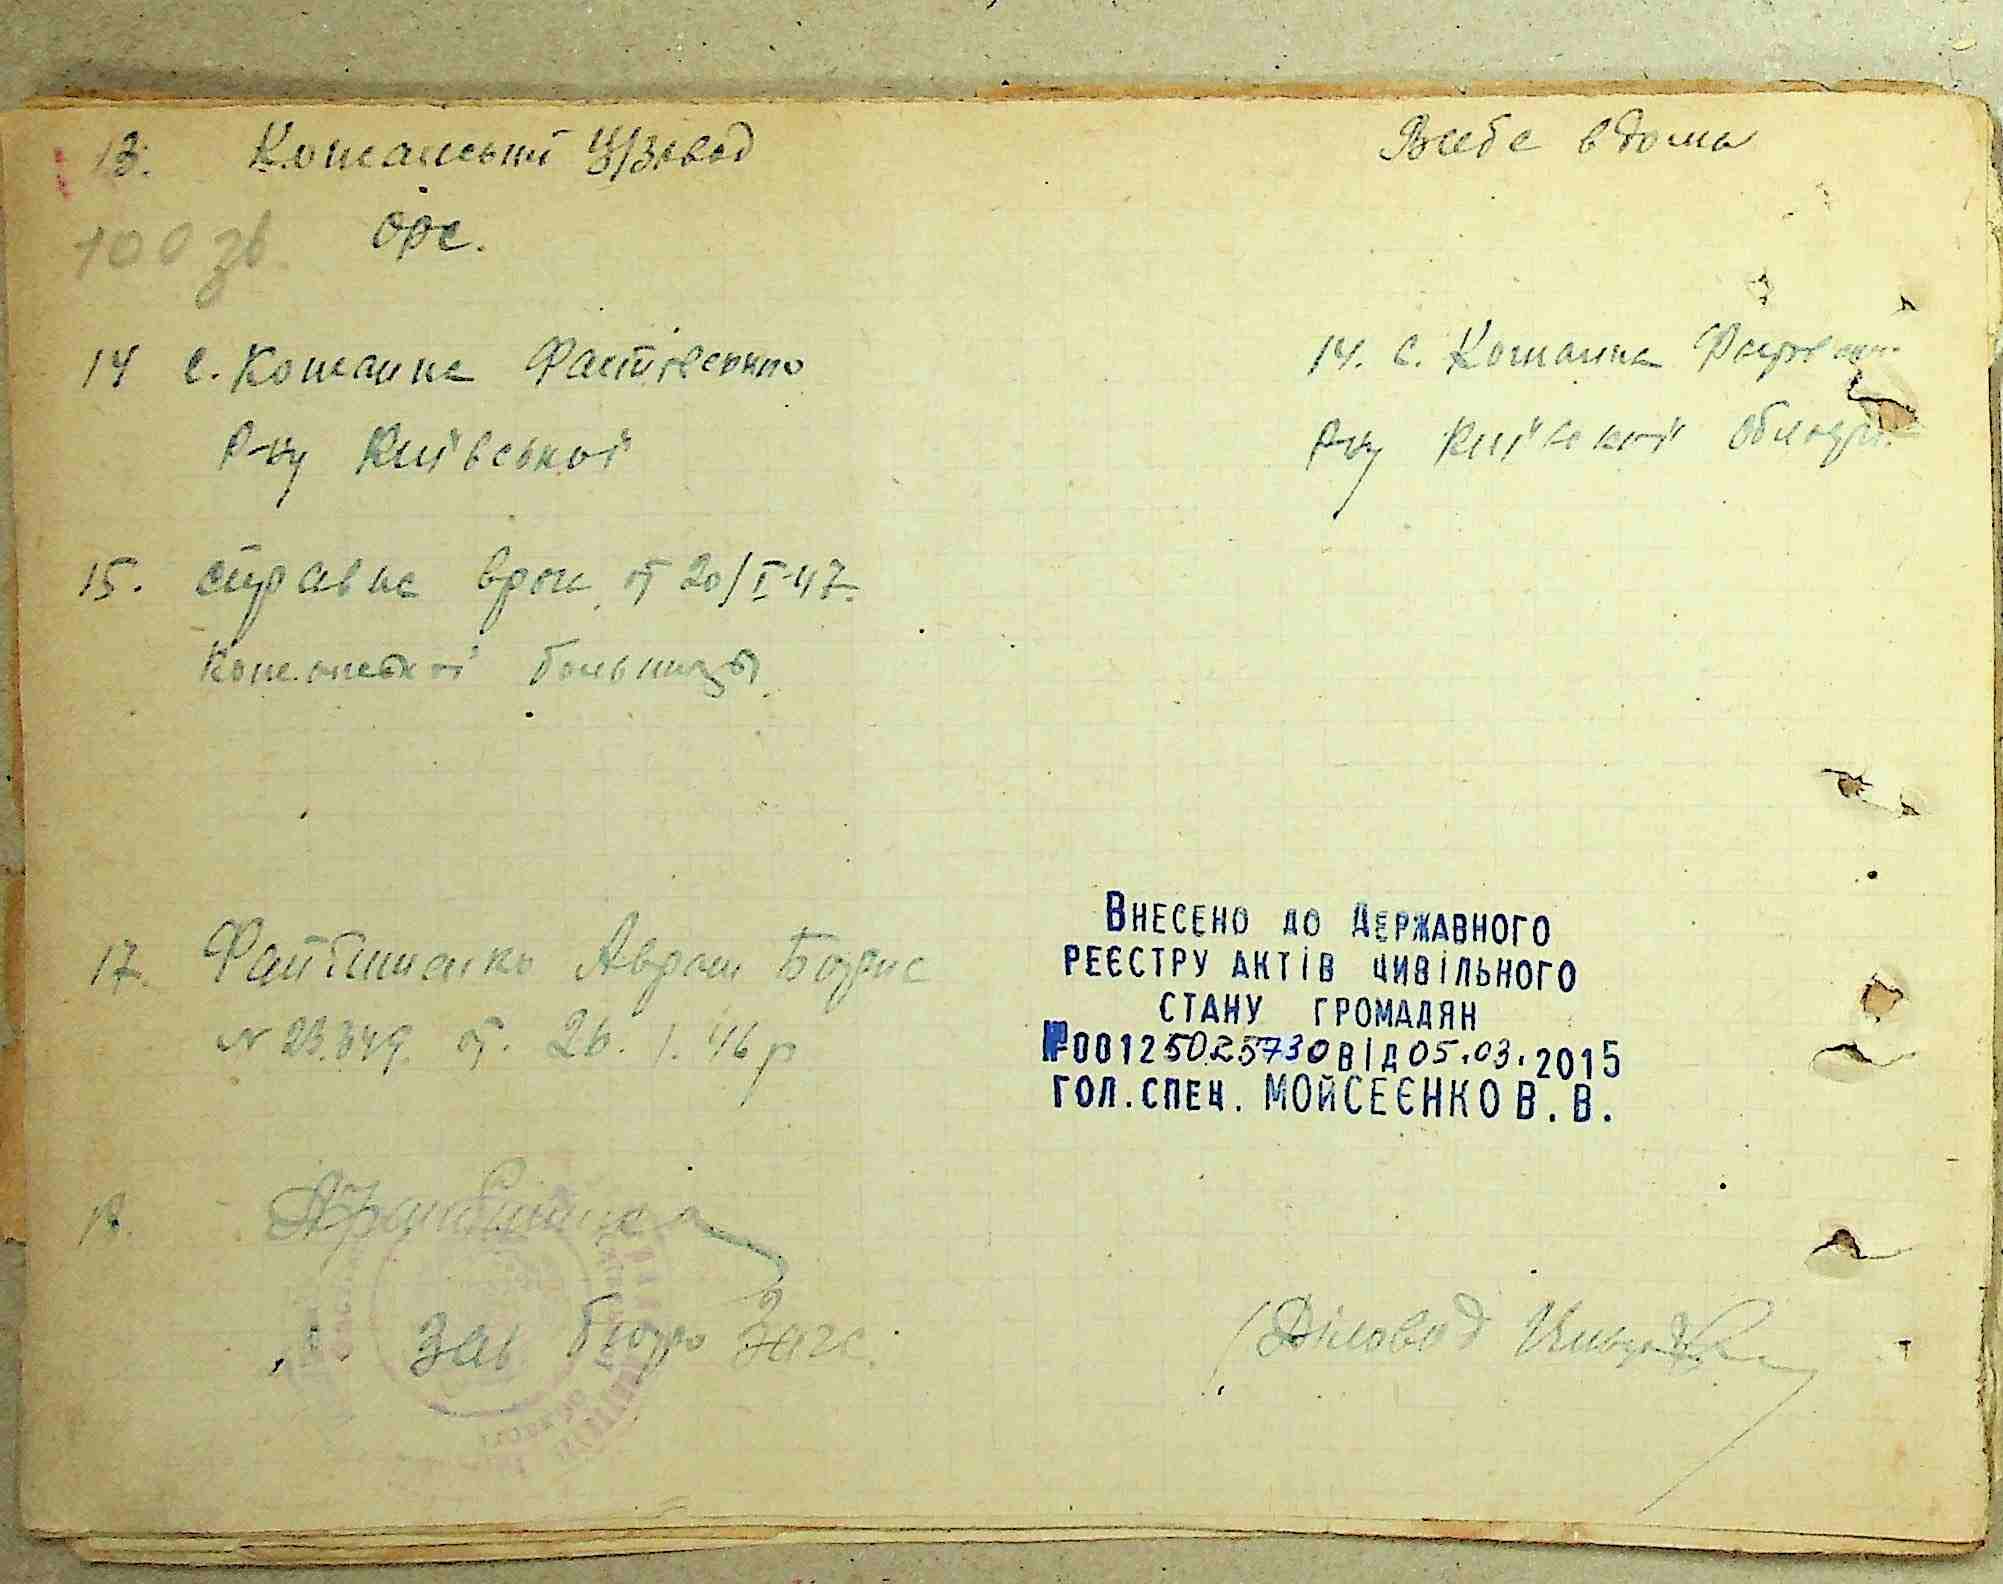 13. Кожанський ц/завод
Себе вдома
100 зв. орс.
14 с. Кожанка Фастівського
р-ну Київської
14. с. Кожанка Фастівськ.
р-ну Київської області
15. справка врач. от 20/I-47.
Кожанської больниці
17. Файбишенко Аврам Борис
N 23.849. от. 26. 1. 46 р
ВНЕСЕНО ДО ДЕРЖАВНОГО
РЕЄСТРУ АКТІВ ЦИВІЛЬНОГО
СТАНУ ГРОМАДЯН
№00125025730 ВІД 05.03.2015
ГОЛ. СПЕЦ. МОЙСЕЄНКО В. В.
18.
Зав бюро Загс.
Діловод